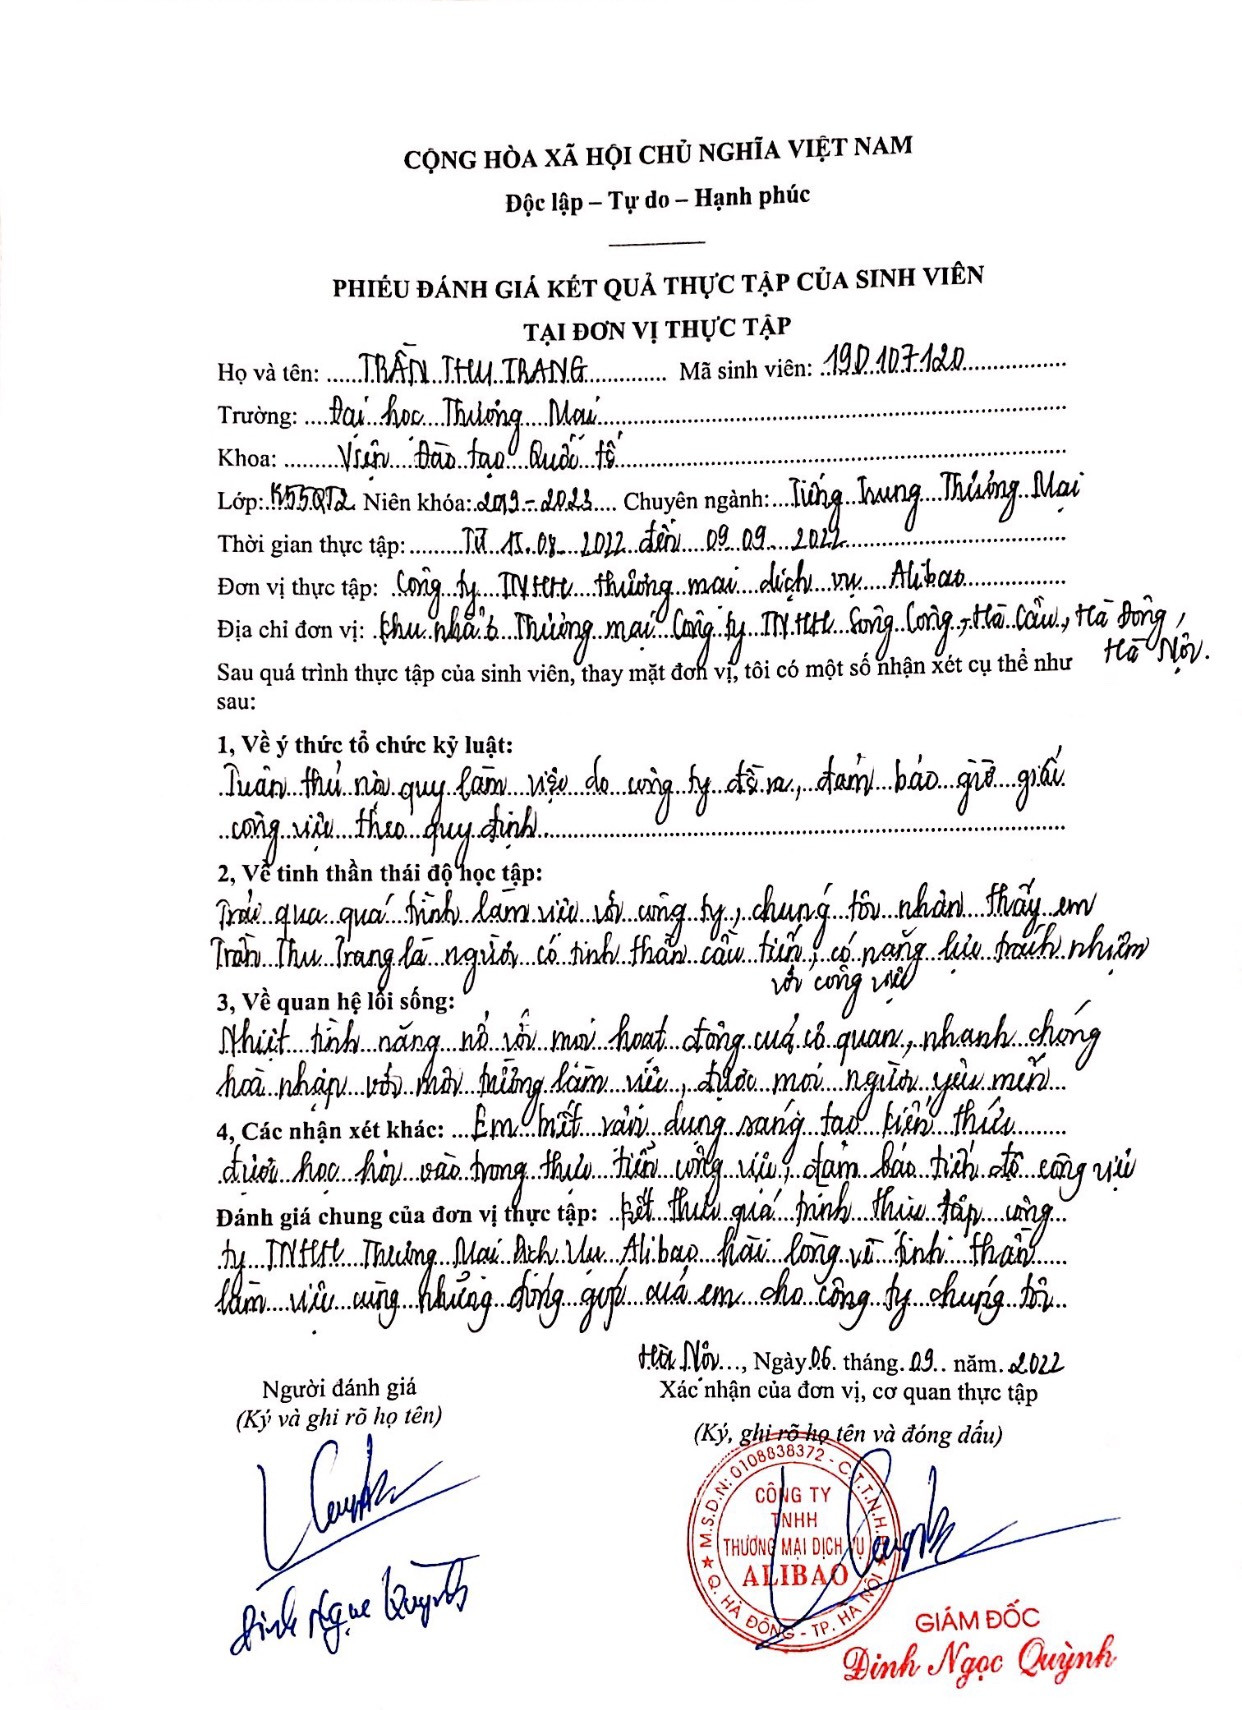 CỘNG HÒA XÃ HỘI CHỦ NGHĨA VIỆT NAM
Độc lập – Tự do – Hạnh phúc
PHIẾU ĐÁNH GIÁ KẾT QUẢ THỰC TẬP CỦA SINH VIÊN
TẠI ĐƠN VỊ THỰC TẬP
Họ và tên: TRẦN THU TRANG Mã sinh viên: 19D107120
Trường: Đại học Thương Mại
Khoa: Viện Đào tạo Quốc tế
Lớp: K55QT2 Niên khóa: 2019 - 2023 Chuyên ngành: Tiếng Trung Thương Mại
Thời gian thực tập: Từ 15.08 2022 đến 09.09 2022
Đơn vị thực tập: Công ty TNHH thương mại dịch vụ Alibao
Địa chỉ đơn vị: Khu nhà ở Thương mại Công ty TNHH Song Công, Hà Cầu, Hà Đông,
Hà Nội.
Sau quá trình thực tập của sinh viên, thay mặt đơn vị, tôi có một số nhận xét cụ thể như
sau:
1, Về ý thức tổ chức kỷ luật:
Tuân thủ nội quy làm việc do công ty đề ra, đảm bảo giờ giấc
công việc theo quy định
2, Về tinh thần thái độ học tập:
Trải qua quá trình làm việc với công ty, chúng tôi nhận thấy em
Trần Thu Trang là người có tinh thần cầu tiến, có năng lực trách nhiệm
với công việc
3, Về quan hệ lối sống:
Nhiệt tình năng nổ với mọi hoạt động của cơ quan, nhanh chóng
hoà nhập với môi trường làm việc, được mọi người yêu mến
4, Các nhận xét khác: Em biết vận dụng sáng tạo kiến thức
được học hỏi vào trong thực tiễn công việc, đảm bảo tiến độ công việc
Đánh giá chung của đơn vị thực tập: Kết thúc quá trình thực tập công
ty TNHH Thương Mại Dịch Vụ Alibao hài lòng về tinh thần
làm việc cùng những đóng góp của em cho công ty chúng tôi
Hà Nội, Ngày 06 tháng 09 năm 2022
Người đánh giá
Xác nhận của đơn vị, cơ quan thực tập
(Ký và ghi rõ họ tên)
(Ký, ghi rõ họ tên và đóng dấu)
M.S.D.N: 0108838372 - C.T.T.N.H.H
CÔNG TY
TNHH
THƯƠNG MẠI DỊCH VỤ
ALIBAO
Q. HÀ ĐÔNG - TP. HÀ NỘI
Đinh Ngọc Quỳnh
GIÁM ĐỐC
Đinh Ngọc Quỳnh